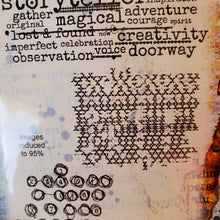 storyteller inspiration
gather magical adventure
original courage spirit
lost & found now creativity
imperfect celebration voice doorway
observation
images
reduced
to 95%